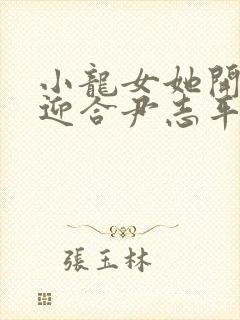 小龍女她開
迎合尹志平
張玉林